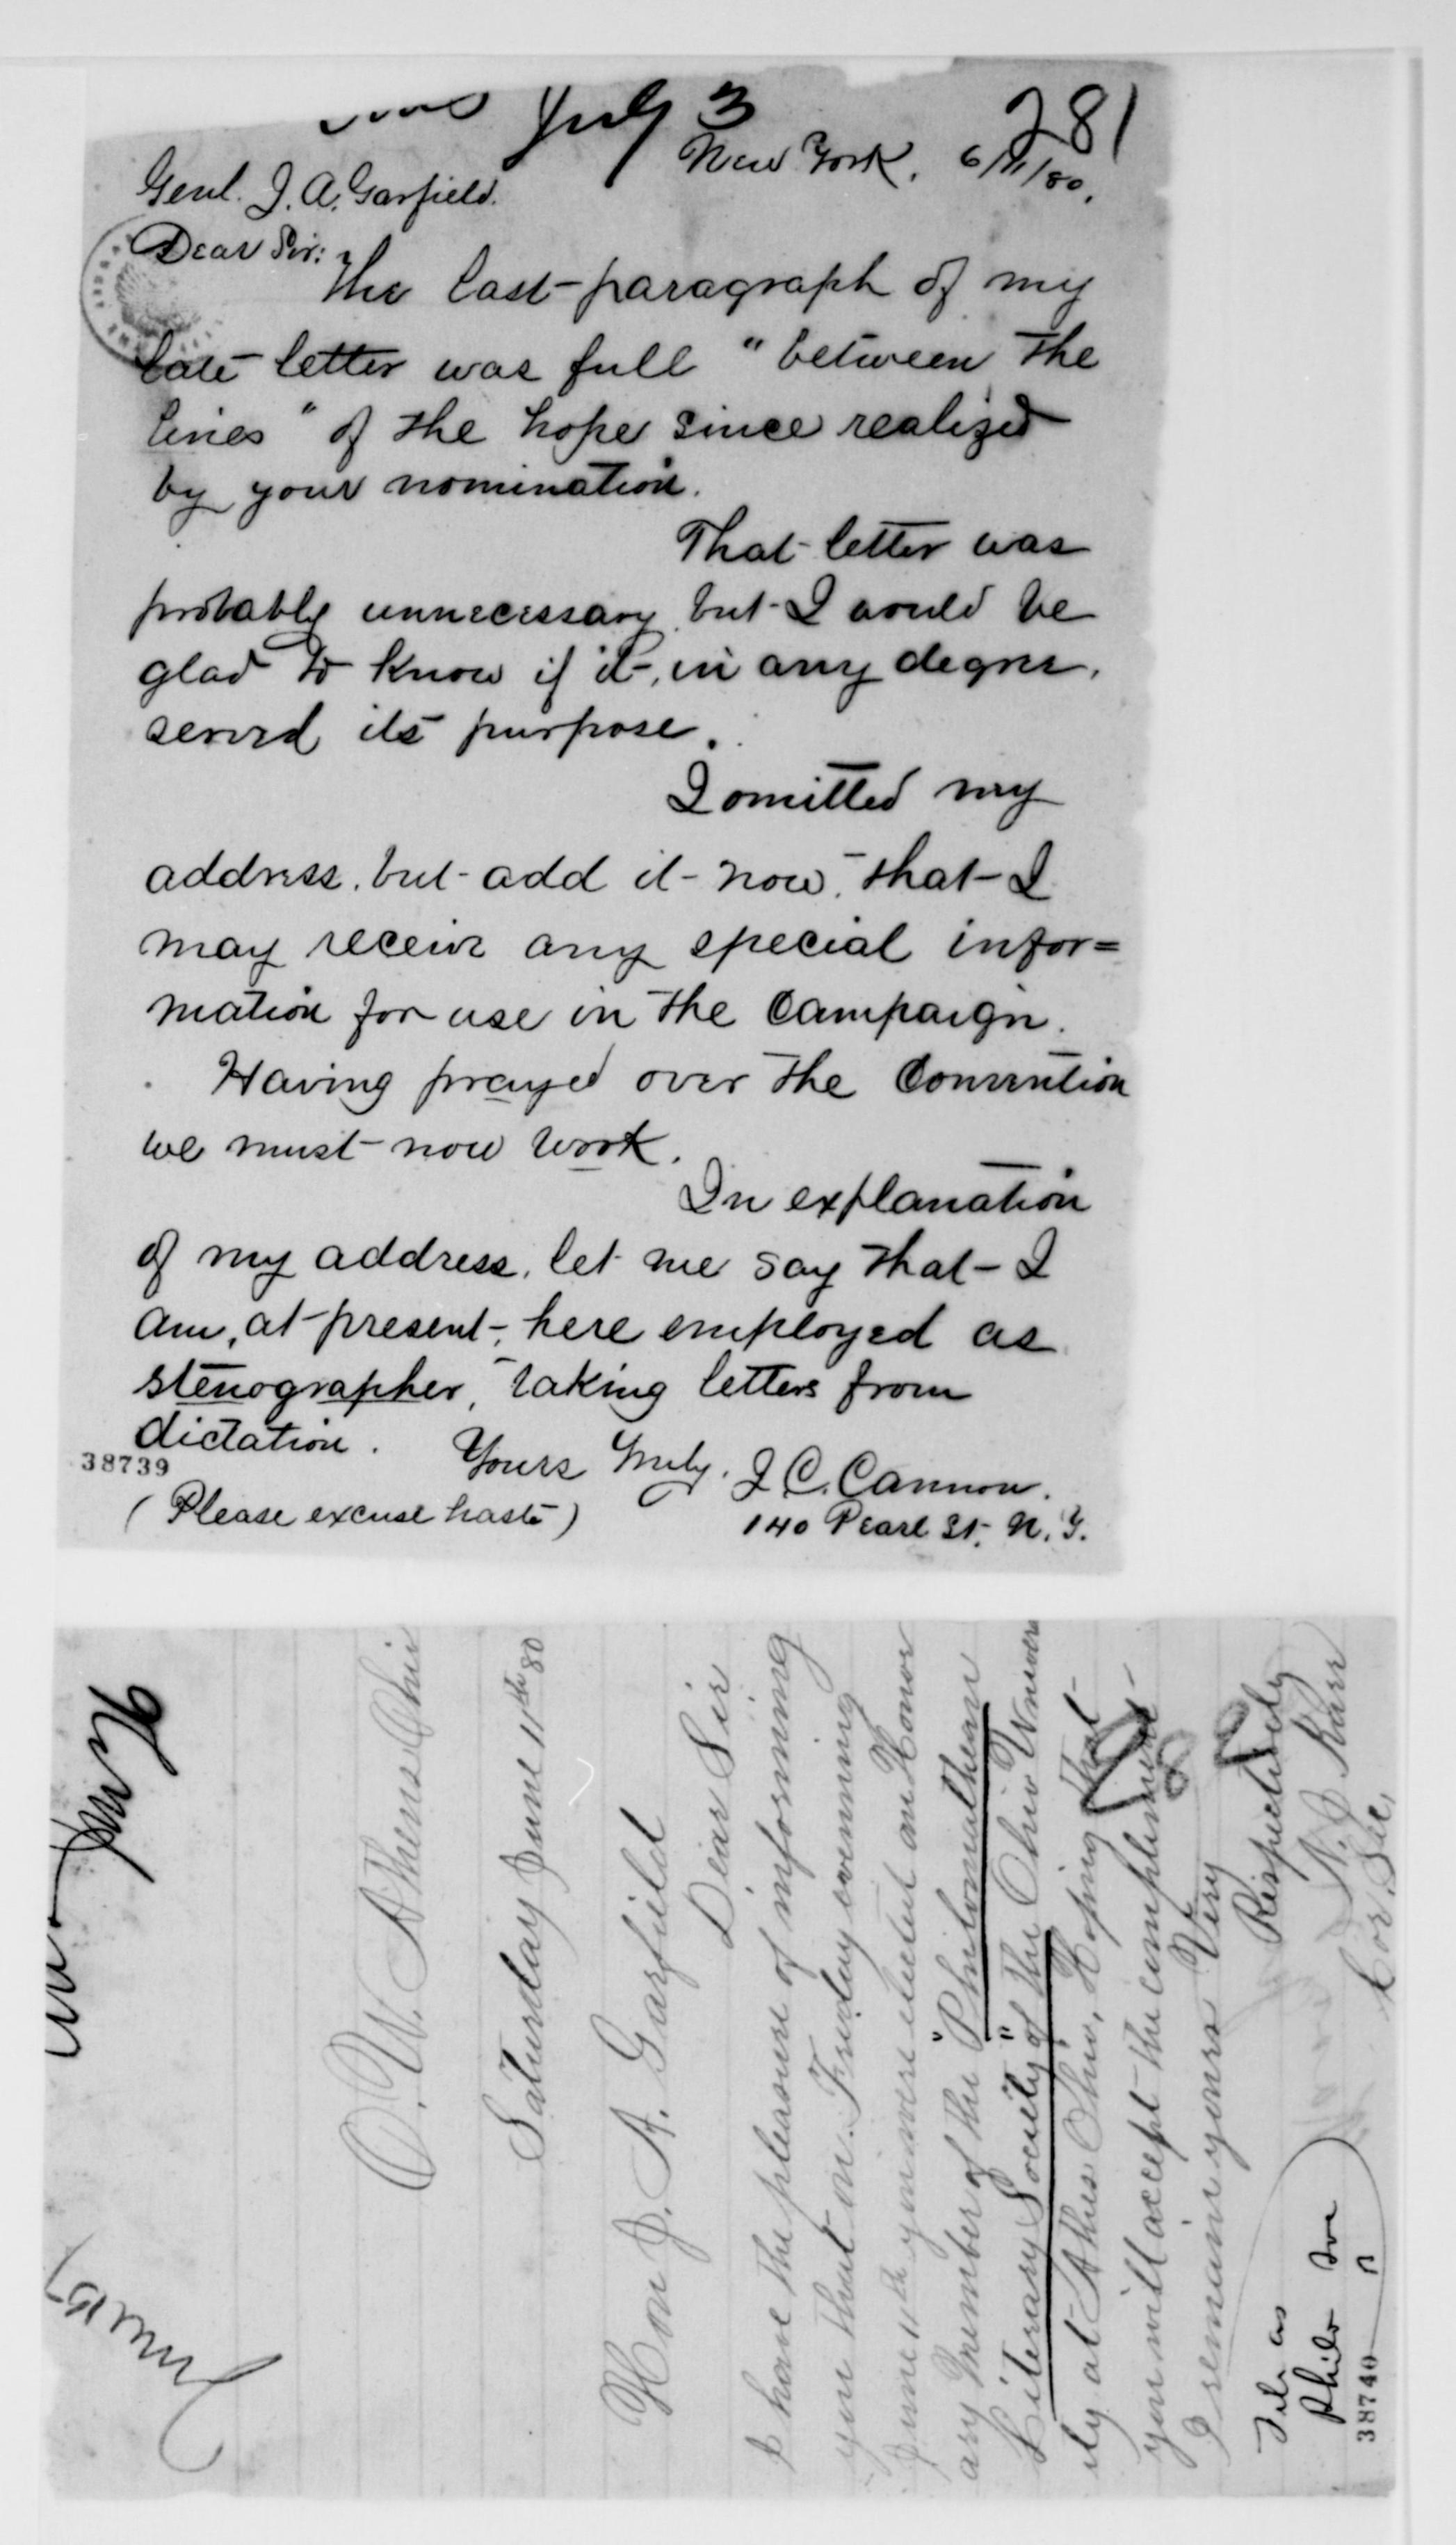 Ans July 3
281
New York, 6/11/80.
Genl. J. A. Garfield.
Dear Sir:
The last paragraph of my
late letter was full "between the
lines" of the hope since realized
by your nomination.
That letter was
probably unnecessary, but I would be
glad to know if it, in any degree,
served its purpose.
I omitted my
address, but add it now, that I
may receive any special infor=
mation for use in the Campaign.
Having prayed over the Convention
we must now work.
In explanation
of my address, let me say that I
am, at present, here employed as
stenographer, taking letters from
dictation.
38739
Yours truly, J. C. Cannon.
(Please excuse haste)
140 Pearl St, N. Y.
Ans July 4
O. U. Athens Ohio
Saturday June 11th 80
Hon J. A. Garfield
Dear Sir
I have the pleasure of informing
you that on Friday evenning
June 11th you were elected an Honor
ary Member of the "Philomathean
Literary Society" of the Ohio Univers
ity at Athens Ohio, Hoping that
you will accept the compliment
I remain yours Very
Respectfully
Karr
Cor. Sec,
282
File as
Philo
38740